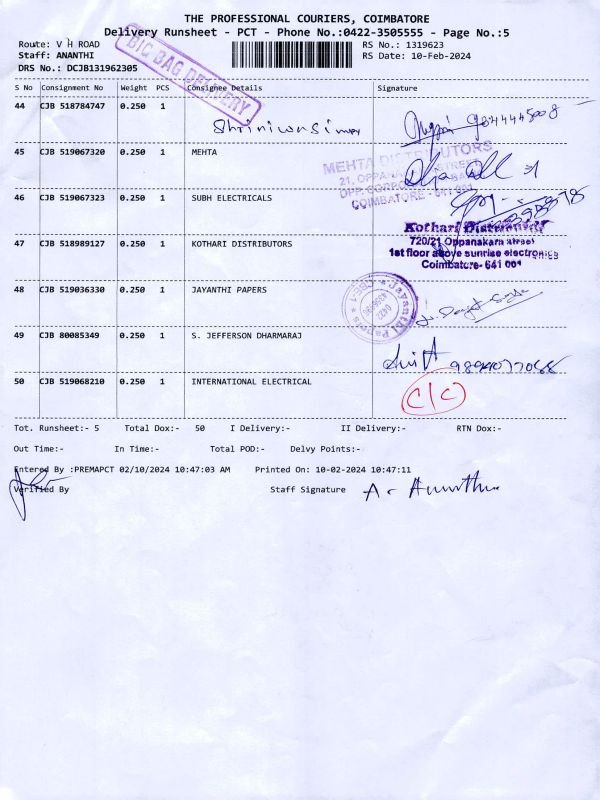 THE PROFESSIONAL COURIERS, COIMBATORE
Delivery Runsheet - PCT - Phone No.:0422-3505555 - Page No.:5
Route: V H ROAD
RS No.: 1319623
Staff: ANANTHI
RS Date: 10-Feb-2024
DRS No.: DCJB131962305
BIG BAG DELIVERY
S No Consignment No Weight PCS Consignee Details Signature
44 CJB 518784747 0.250 1
45 CJB 519067320 0.250 1 MEHTA
MEHTA DISTRIBUTORS
COIMBATORE - 641 001
46 CJB 519067323 0.250 1 SUBH ELECTRICALS
Kothari Distributors
47 CJB 518989127 0.250 1 KOTHARI DISTRIBUTORS
720/21 Oppanakara street
1st floor above sunrise electronics
Coimbatore- 641 001
48 CJB 519036330 0.250 1 JAYANTHI PAPERS
Jayanthi Papers
49 CJB 80085349 0.250 1 S. JEFFERSON DHARMARAJ
50 CJB 519068210 0.250 1 INTERNATIONAL ELECTRICAL
C/C
Tot. Runsheet:- 5 Total Dox:- 50 I Delivery:- II Delivery:- RTN Dox:-
Out Time:- In Time:- Total POD:- Delvy Points:-
Entered By :PREMAPCT 02/10/2024 10:47:03 AM Printed On: 10-02-2024 10:47:11
Verified By Staff Signature